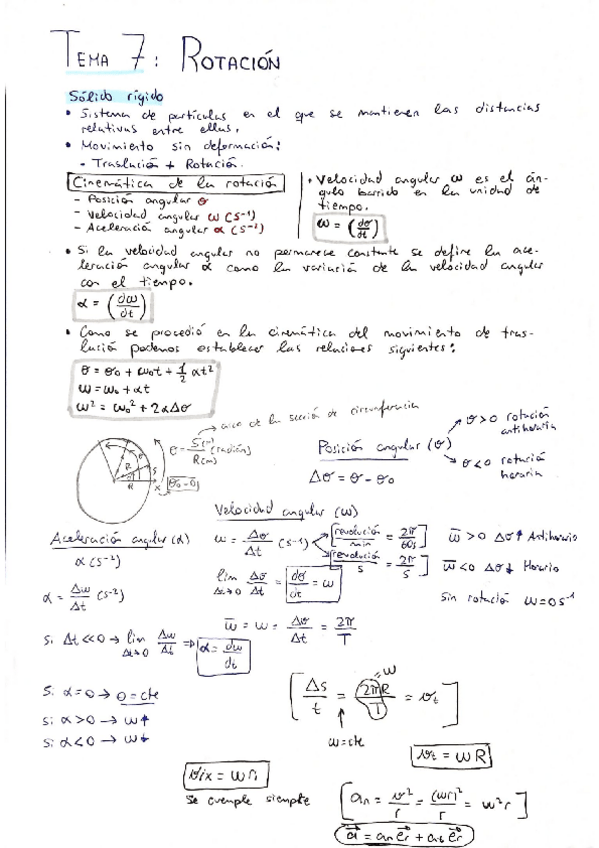 TEMA 7: ROTACIÓN
Sólido rígido
• Sistema de partículas en el que se mantienen las distancias
relativas entre ellas.
• Movimiento sin deformación:
- Traslación + Rotación.
Cinemática de la rotación
- Posición angular θ
- Velocidad angular ω (s⁻¹)
- Aceleración angular α (s⁻²)
• Velocidad angular ω es el án-
gulo barrido en la unidad de
tiempo.
ω = (dθ/dt)
• Si la velocidad angular no permanece constante se define la ace-
leración angular α como la variación de la velocidad angular
con el tiempo.
α = (dω/dt)
• Como se procedió en la cinemática del movimiento de tras-
lación podemos establecer las relaciones siguientes:
θ = θ₀ + ω₀t + 1/2 αt²
ω = ω₀ + αt
ω² = ω₀² + 2αΔθ
→ arco de la sección de circunferencia
θ = S(m)/R(m) (radián)
θ₀ = 0
R
S
R
X
Posición angular (θ)
θ>0 rotación
antihoraria
θ<0 rotación
horaria
Δθ = θ - θ₀
Velocidad angular (ω)
ω = Δθ/Δt (s⁻¹)
[revolución/min = 2π/60s]
[revolución/s = 2π/s]
ω̄ >0 Δθ↑ Antihorario
ω̄ <0 Δθ↓ Horario
Sin rotación ω=0 s⁻¹
lim Δt→0 Δθ/Δt = dθ/dt = ω
ω̄ = ω = Δθ/Δt = 2π/T
Aceleración angular (α)
α (s⁻²)
α = Δω/Δt (s⁻²)
Si Δt<<0 → lim Δt→0 Δω/Δt ⇒ α = dω/dt
Si α=0 → θ=cte
Si α>0 → ω↑
Si α<0 → ω↓
[Δs/t = 2πR/T = vt]
=ω
ω=cte
vt = ωR
vix = ωri
Se cumple siempre
[an = v²/r = (ωr)²/r = ω²r]
a⃗ = an er⃗ + at er⃗